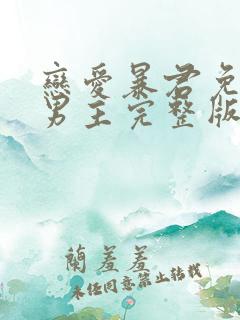 戀愛暴君免
男主完整版
蘭羞羞
未经同意禁止转载